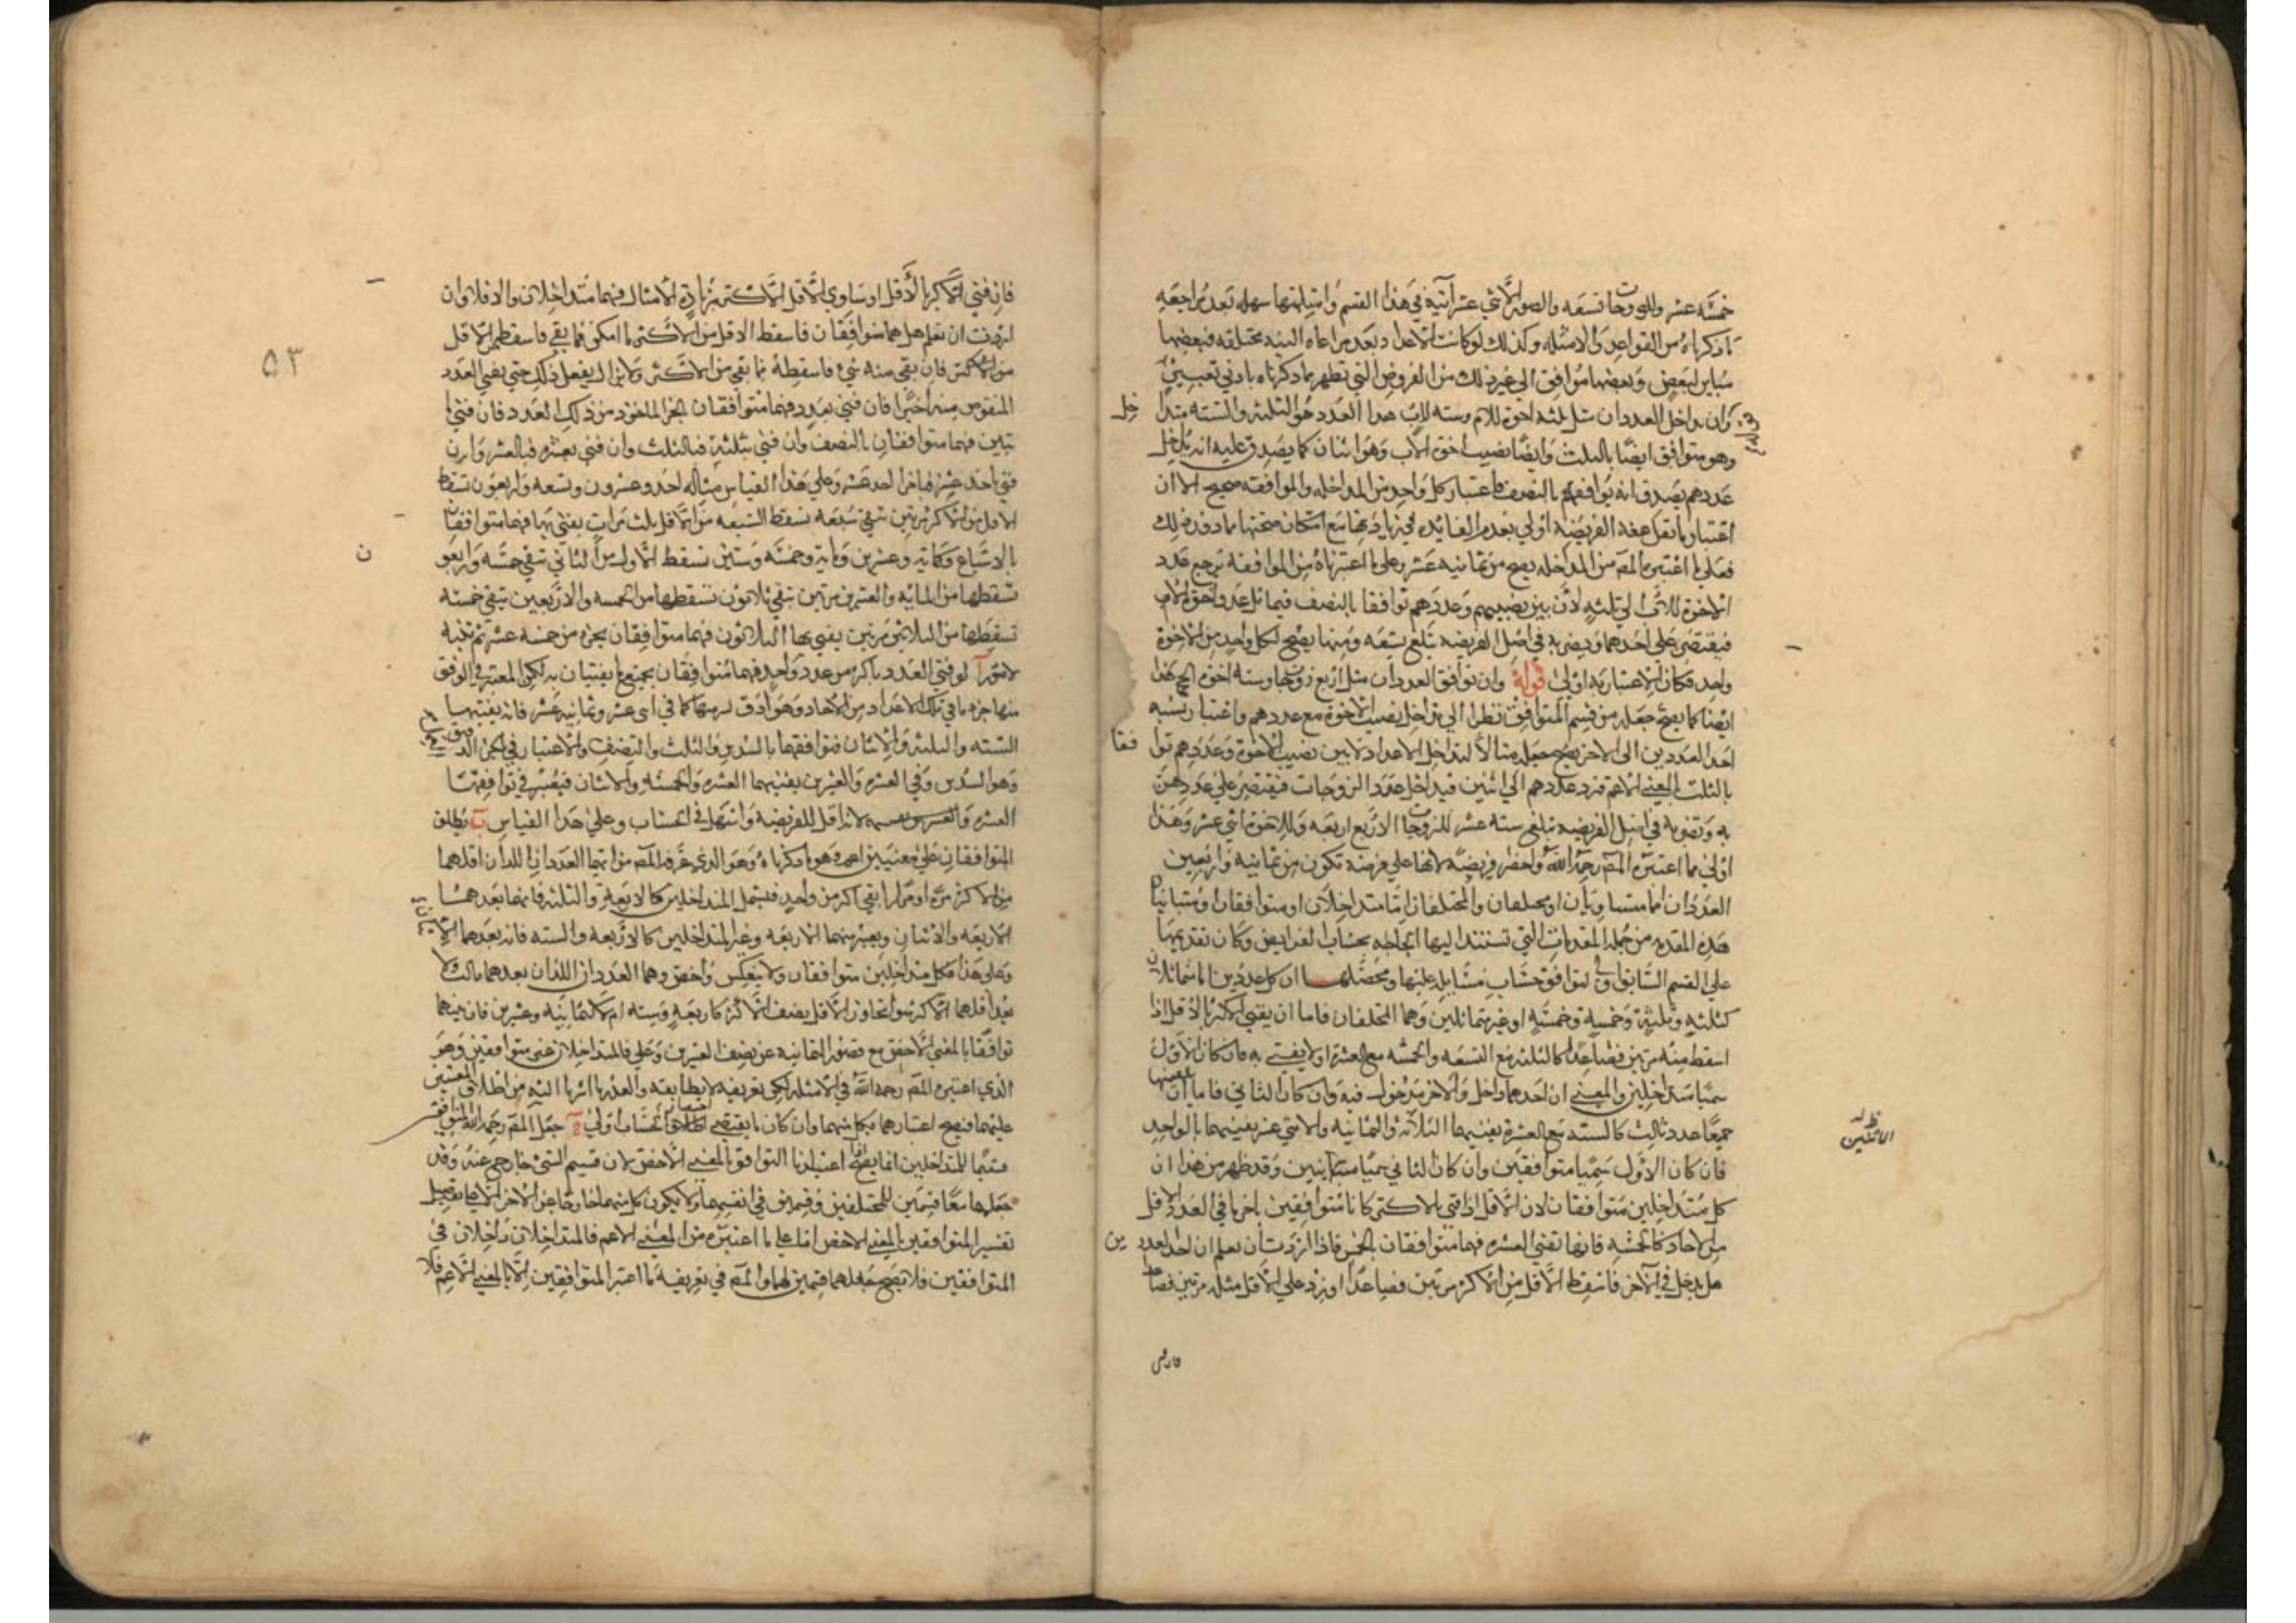 خمسة عشر وللزوجات تسعه والصور الاثني عشر آتية في هذا القسم وامثلتها سهله بعد مراجعه
ما ذكرناه من القواعد والامثله وكذلك لو كانت الاعداد بعد مراعاه النسبه مختلفه فبعضها
مباين لبعض وبعضها موافق الى غير ذلك من الفروض التي تظهر مما ذكرناه بادنى تغيير
وان تداخل العددان مثل ثلثه اخوة للام وسته للاب هذا العدد هو الثلثه والسته متدا
خل
وهو متوافق ايضا بالثلث وايضا نصيب اخوة الاب وهو اثنان كما يصدق عليه انه يداخل
عددهم يصدق انه يوافقهم بالنصف فاعتبار كل واحد من المداخله والموافقه صحيح الا ان
اعتبار ما تقل معه الفريضه اولى بعدم الفائده في زيادتها مع امكان صحتها بما دون ذلك
فعلى ما اعتبره المص من المداخله يصح من ثمانيه عشر وعلى ما اعتبرناه من الموافقه يرجع عدد
الاخوة للاب الى ثلثه لان بين نصيبهم وعددهم توافقا بالنصف فيماثل عدد اخوة الام
فيقتصر على احدهما ويضربه في اصل الفريضه تبلغ تسعه ومنها يصح لكل واحد من الاخوة
واحد فكان الاعتبار به اولى قوله وان توافق العددان مثل اربع زوجات وسته اخوة الخ هذا
ايضا كما يصح جعله من قسم المتوافق نظرا الى تداخل نصيب الاخوة مع عددهم واعتبار نسبه
احد العددين الى الاخر يصح جعله مثالا لتداخل الاعداد لان بين نصيب الاخوة وعددهم توا
فقا
بالثلث بالمعنى الاعم فترد عددهم الى اثنين فيداخل عدد الزوجات فيقتصر على عددهن
وتضربه في اصل الفريضه تبلغ سته عشر للزوجات الاربع اربعه وللاخوة اثنى عشر وهذا
اولى مما اعتبره المص رحمه الله واخصر فريضة لانها على فرضه تكون من ثمانيه واربعين
العددان اما متساويان او مختلفان والمختلفان اما متداخلان او متوافقان او متباينان
هذه المقدمه من جمله المقدمات التي تستند اليها الحاجه بحساب الفرايض وكان تقديمها
على القسم السابق اولى لتوافق حساب مسايله عليها ومحصلها ان كل عددين اما متماثلان
كثلثه وثلثة وخمسه وخمسه او غير متماثلين وهما المختلفان فاما ان يفنى الاكثر بالاقل اذا
اسقط منه مرتين فصاعدا كالثلثه مع التسعه والخمسه مع العشرة او لا يفنى به فان كان الاول
سميا متداخلين والمعنى ان احدهما داخل والاخر مدخول فيه وان كان الثاني فاما ان يفنيهما
جميعا عدد ثالث كالسته مع العشرة يفنيهما الثلاثه والثمانيه والاثني عشر يفنيهما بالواحد
فان كان الاول سميا متوافقين وان كان الثاني سميا متباينين وقد ظهر من هذا ان
كل متداخلين متوافقان لان الاقل اذا فنى بالاكثر كانا متوافقين باخر ما في العدد الاقل
من الاحاد كالخمسه فانها تفني العشرة فهما متوافقان بالخمس فاذا اردت ان تعلم ان احد العدد
ين
هل يدخل في الاخر فاسقط الاقل من الاكثر مرتين فصاعدا او زد على الاقل مثله مرتين فصاعدا
٥٣
فان فنى الاكثر بالاقل او ساوى الاقل الاكثر بزيادة الامثال فهما متداخلان والا فلا وان
اردت ان تعلم هل هما متوافقان فاسقط الاقل من الاكثر ما امكن فما بقي فاسقطه من الاقل
من الاكثر فان بقى منه شيء فاسقطه مما بقي من الاكثر ولا يزال يفعل ذلك حتى يفنى العدد
المنقوص منه اخيرا فان فنى بعدد فهما متوافقان بالجزء الماخوذ من ذلك العدد فان فنى با
ثنين فهما متوافقان بالنصف وان فنى بثلثة فبالثلث وان فنى بعشره فبالعشر وان
فنى باحد عشر فباجزاء احد عشر وعلى هذا القياس مثاله احد وعشرون وتسعه واربعون تسقط
الاقل من الاكثر مرتين تبقى سبعه تسقط السبعه من الاقل ثلث مرات يفنى بها فهما متوافقان
بالاسباع وكمائة وعشرين ومائة وخمسه وستين تسقط الاول من الثاني تبقى خمسه واربعو
ن
تسقطها من المائه والعشرين مرتين تبقى ثلاثون تسقطها من الخمسه والاربعين تبقى خمسه
تسقطها من الثلاثين مرتين يفنى بها الثلاثون فهما متوافقان بجزء من خمسه عشر ثم تنبه
لامور آ لو فنى العدد باكثر من عدد واحد فهما متوافقان بجميع ما يفنيان به لكن المعتبر في الوفق
منها جزء ما في تلك الاعداد من الاحاد وهو ادق نسبها كما في اثنى عشر وثمانيه عشر فانه يفنيهما
السته والثلثه والاثنان فتوافقهما بالسدس والثلث والنصف والاعتبار في الجزء الدقيق
وهو السدس وفي العشرة والعشرين يفنيهما العشره والخمسه والاثنان فيعتبر في توافقهما
العشره لانه اقل للفريضه واسهل في الحساب وعلى هذا القياس ب يطلق
المتوافقان على معنيين اعم وهو ما ذكرناه وهو الذي عرفه المص من انهما العددان اللذان اذا اقلهما
من الاكثر مرة او مرارا بقي اكثر من واحد فيشمل المتداخلين كالاربعة
الاربعه والاثنان ويعتبر منهما الاربعه وغير المتداخلين كالاربعه والسته فانه يعدهما الاثنان
وعلى هذا فكل متداخلين متوافقان ولا ينعكس واخص وهما العددان اللذان يعدهما ثالث ولا
يعد اقلهما الاكثر سوا تجاوز الاقل نصف الاكثر كاربعة وسته ام لا كثمانيه وعشرين فان بينهما
توافقا بالمعنى الاخص مع قصور الثمانيه عن نصف العشرين وعلى فالمتداخلان غير متوافقين وهو
الذي اعتبره المص رحمه الله في الامثله لكن تعريفه لا يطابقه والعذر ما اشرنا اليه من اطلاق المعنيين
عليهما فيصح اعتبارهما بكل منهما وان كان ما يقتضي اختصار الحساب اولى جعل المص رحمه الله المتوافقين
قسيما للمتداخلين انما يصح اذا اعتبرنا التوافق بالمعنى الاخص لان قسيم الشيء خارج عنه وقد
جعلهما معا قسمين للمختلفين
تفسير المتوافقين بالمعنى الاخص اما على ما اعتبره من المعنى الاعم فالمتداخلان داخلان في
المتوافقين فلا يصح جعلهما قسمين لهما والمص في تعريفه ما اعتبر المتوافقين الا بالمعنى الاعم فلا